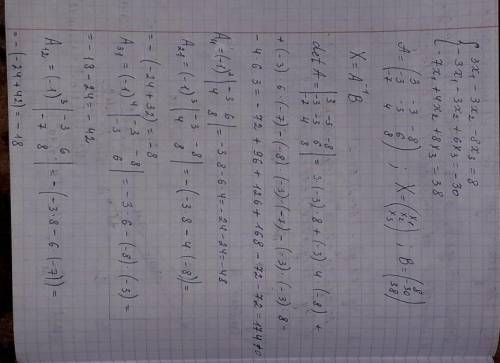 { 3x₁ - 3x₂ - 8x₃ = 8
- 3x₁ - 3x₂ + 6x₃ = -30
- 7x₁ + 4x₂ + 8x₃ = 38
A = ( 3 -3 -8
-3 -3 6
-7 4 8 ) ; X = ( x₁
x₂
x₃ ) ; B = ( 8
-30
38 )
X = A⁻¹ B
det A = | 3 -3 -8
-3 -3 6
-7 4 8 | = 3·(-3)·8 + (-3)·4·(-8) +
+ (-3)·6·(-7) - (-8)·(-3)·(-7) - (-3)·(-3)·8 -
- 4·6·3 = -72 + 96 + 126 + 168 - 72 - 72 = 174 ≠ 0
A₁₁ = (-1)² | -3 6
4 8 | = -3·8 - 6·4 = -24 - 24 = -48
A₂₁ = (-1)³ | -3 -8
4 8 | = - (-3·8 - 4·(-8)) =
= - (-24 + 32) = -8
A₃₁ = (-1)⁴ | -3 -8
-3 6 | = -3·6 - (-8)·(-3) =
= -18 - 24 = -42
A₁₂ = (-1)³ | -3 6
-7 8 | = - (-3·8 - 6·(-7)) =
= - (-24 + 42) = -18